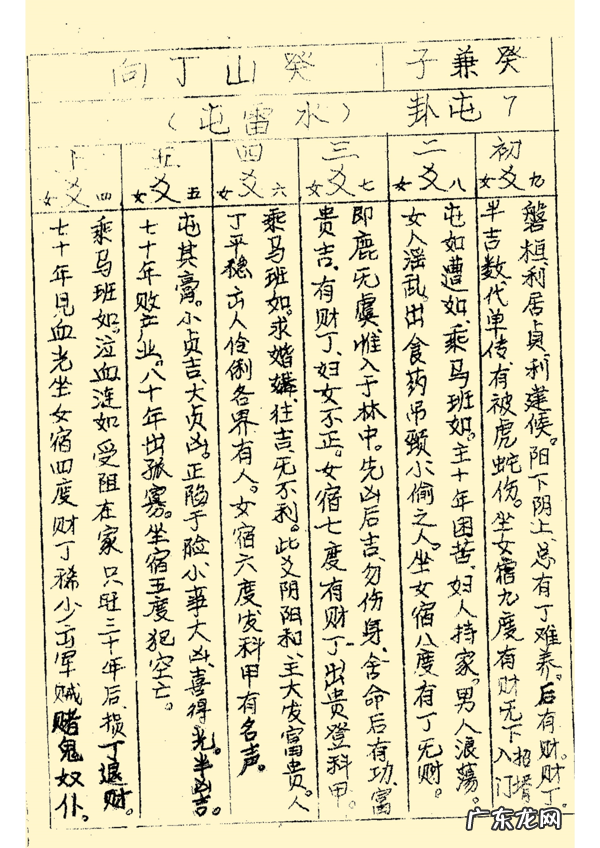 癸兼子
癸山丁向
7屯卦
（水雷屯）
初爻 女九
磐桓利居贞，利建候。阳下阴上，总有丁难养。后有财。财丁
半吉数代单传，有被虎蛇伤。坐女宿九度有财无丁招婿入门
二爻 女八
屯如遭如，乘马班如。主十年困苦，妇人持家。男人浪荡。
女人淫乱。出食药吊颈小偷之人。坐女宿八度有丁无财。
三爻 女七
即鹿无虞，惟入于林中。先凶后吉，勿伤身，舍命后有功，富
贵吉，有财丁，妇女不正。女宿七度有财丁出贵登科甲。
四爻 女六
乘马班如。求婚媾，往吉无不利。此爻阴阳和，主大发富贵。人
丁平稳，出人伶俐各界有人。女宿六度发科甲有名声。
五爻 女五
屯其膏。小贞吉，大贞凶。正陷于脸，小事大凶，喜得光。半凶吉。
七十年败产业。八十年出孤寡。坐宿五度犯空亡。
上爻 女四
乘马班如。泣血涟如受阻在家只旺三十年后，损丁退财。
七十年见血光坐女宿四度财丁稀少出军贼赌鬼奴仆。
广东龙网